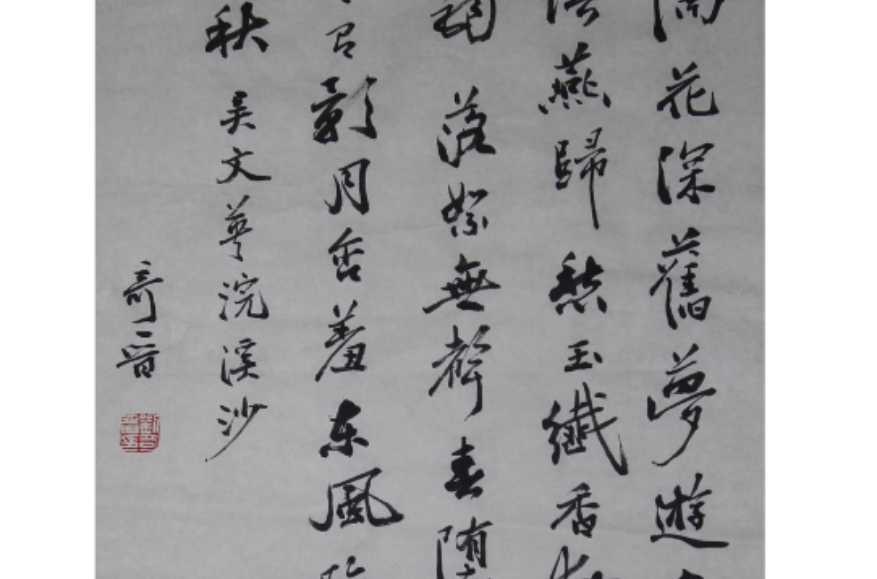 花深舊夢遊
燕歸愁玉纖香
落絮無聲春墮
影月含羞東風
秋 吴文英浣溪沙
奇晉